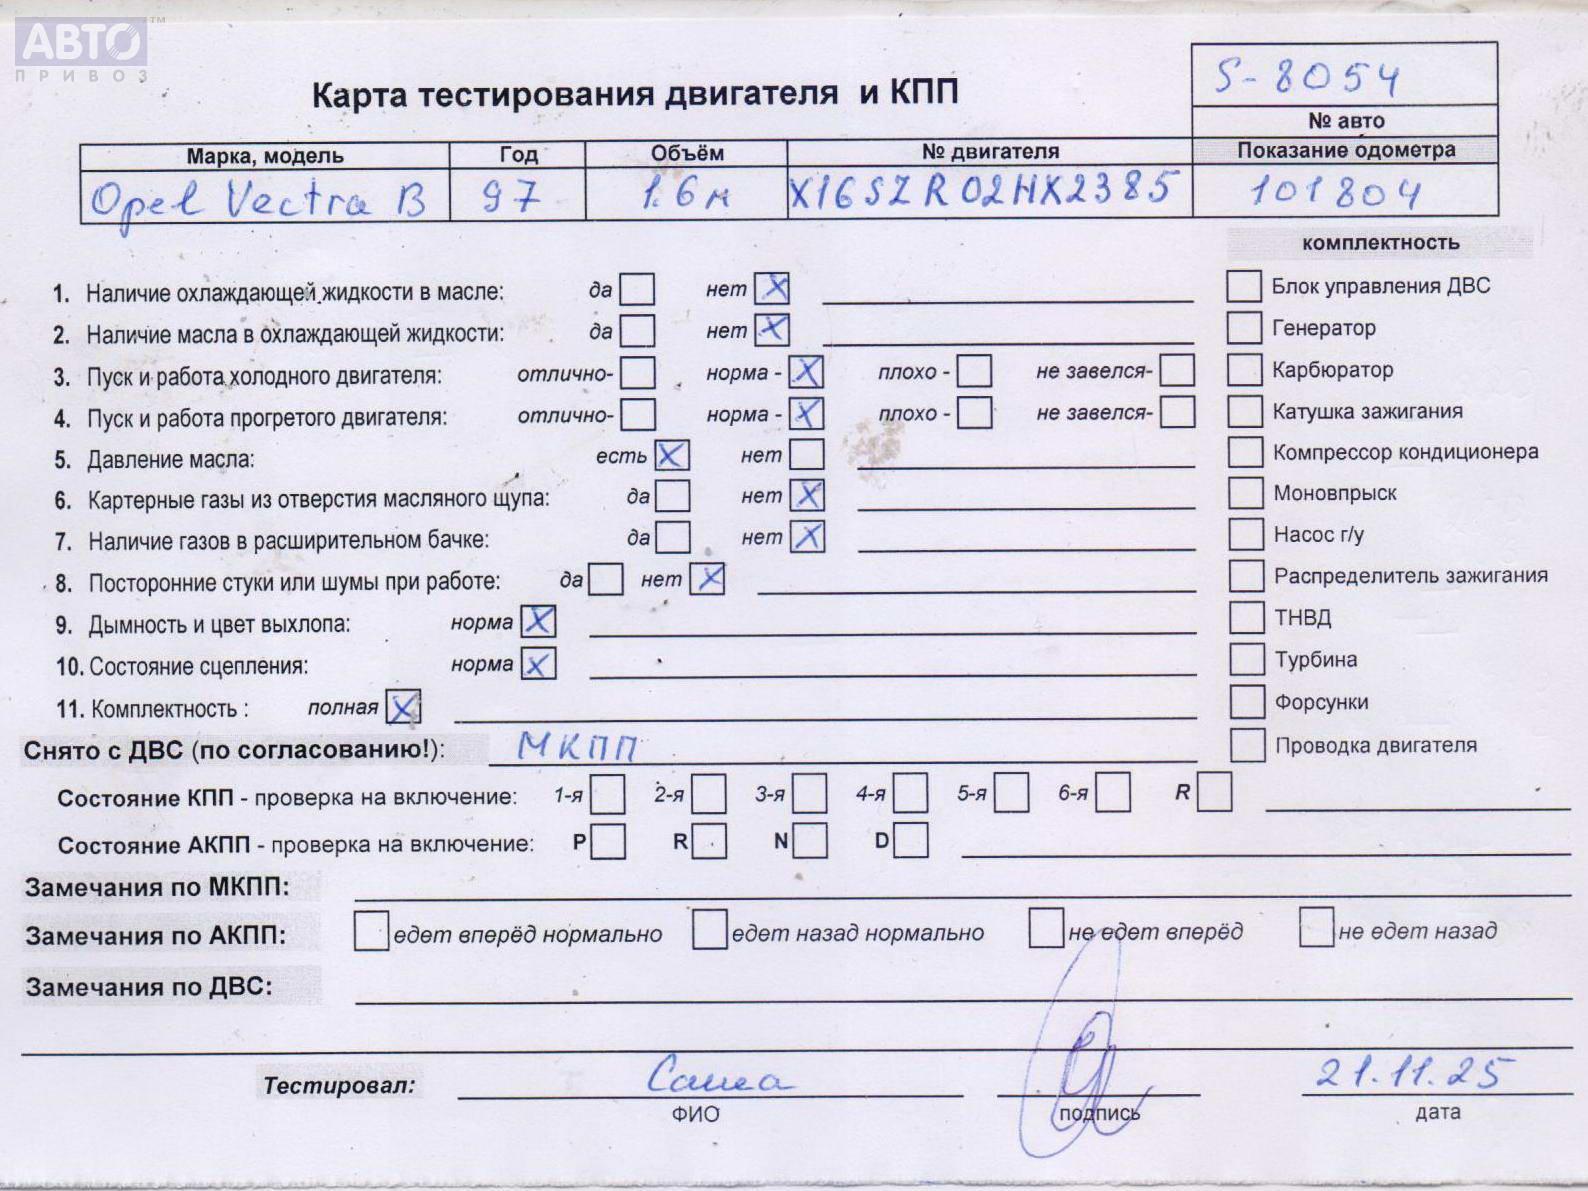 АВТО™
ПРИВОЗ
S-8054
Карта тестирования двигателя и КПП
№ авто
Марка, модель Год Объём № двигателя Показание одометра
Opel Vectra B 97 1.6м X16SZR02HX2385 101804
комплектность
1. Наличие охлаждающей жидкости в масле: да нет X Блок управления ДВС
2. Наличие масла в охлаждающей жидкости: да нет X Генератор
3. Пуск и работа холодного двигателя: отлично- норма - X плохо - не завелся- Карбюратор
4. Пуск и работа прогретого двигателя: отлично- норма - X плохо - не завелся- Катушка зажигания
5. Давление масла: есть X нет Компрессор кондиционера
6. Картерные газы из отверстия масляного щупа: да нет X Моновпрыск
7. Наличие газов в расширительном бачке: да нет X Насос г/у
8. Посторонние стуки или шумы при работе: да нет X Распределитель зажигания
9. Дымность и цвет выхлопа: норма X ТНВД
10. Состояние сцепления: норма X Турбина
11. Комплектность : полная X Форсунки
Снято с ДВС (по согласованию!): МКПП Проводка двигателя
Состояние КПП - проверка на включение: 1-я 2-я 3-я 4-я 5-я 6-я R
Состояние АКПП - проверка на включение: P R N D
Замечания по МКПП:
Замечания по АКПП: едет вперёд нормально едет назад нормально не едет вперёд не едет назад
Замечания по ДВС:
Тестировал: Саша 21.11.25
ФИО подпись дата